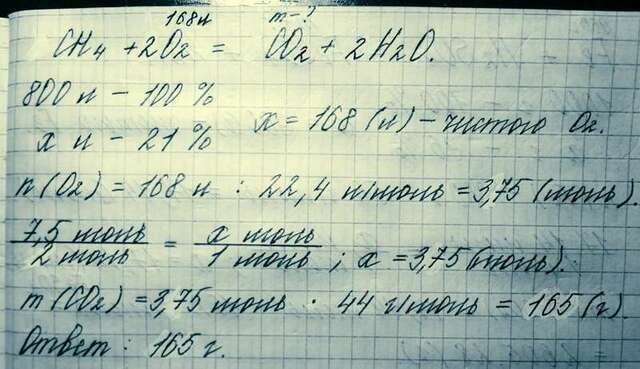 168 л m-?
CH4 + 2O2 = CO2 + 2H2O.
800 л - 100 %
x л - 21 % x = 168 (л) - чистого O2.
n(O2) = 168 л : 22,4 л/моль = 3,75 (моль).
7,5 моль / 2 моль = x моль / 1 моль ; x = 3,75 (моль).
m(CO2) = 3,75 моль · 44 г/моль = 165 (г).
Ответ: 165 г.